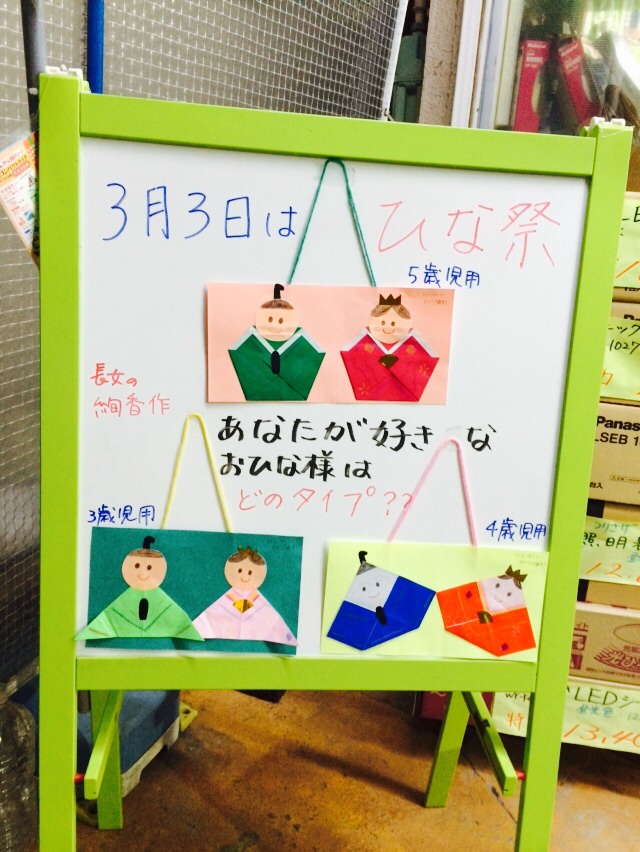 3月3日は ひな祭
5歳児用
長女の
絢香作
あなたが好きな
おひな様は
どのタイプ??
3歳児用
4歳児用
Panas
LSEB 1
照明
LED
特
13,40